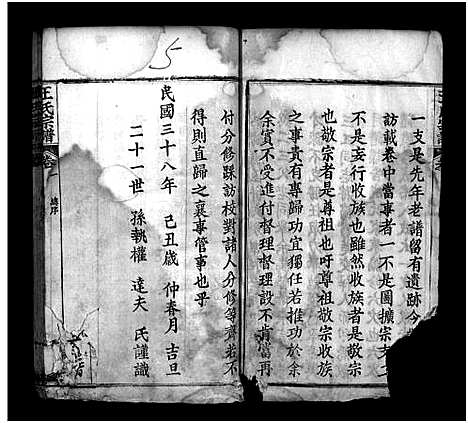 一支是先年老譜留有遺跡今
訪載卷中當事者一不是圖擴宗支二
不是妄行收族也雖然收族者是敬宗
也敬宗者是尊祖也吁尊祖敬宗收族
之事貴有專歸功宜獨任若推功於余
余實不受進付督理督理設不肯當再
付分修縣訪校對諸人分修等齊若不
得則直歸之襄事管事也乎
民國三十八年 己丑歲 仲春月 吉旦
二十一世 孫執權 達夫 氏謹識
王氏宗譜 卷
總序
5